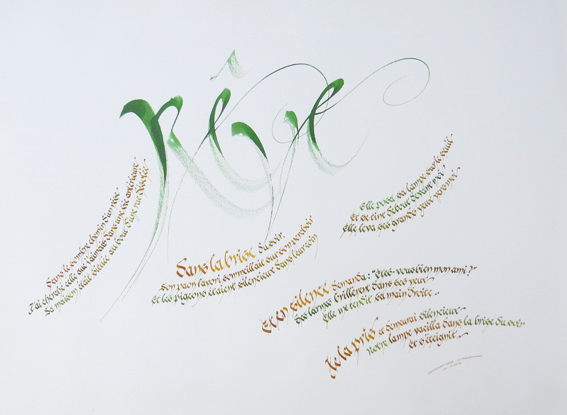 rêve
Dans le sombre chemin d'un rêve
J'ai cherché celle que j'aimais dans une vie antérieure
Sa maison était située au bout d'une rue désolée
Dans la brise du soir,
Son paon favori sommeillait sur son perchoir
Et les pigeons étaient silencieux dans leur coin
Elle posa sa lampe sur le seuil
Et se tint debout devant moi
Elle leva ses grands yeux vers moi
Et en silence demanda : "Êtes-vous bien mon ami ?"
Des larmes brillèrent dans ses yeux
Elle me tendit sa main droite
Je la pris et demeurai silencieux
Notre lampe vacilla dans la brise du soir
Et s'éteignit